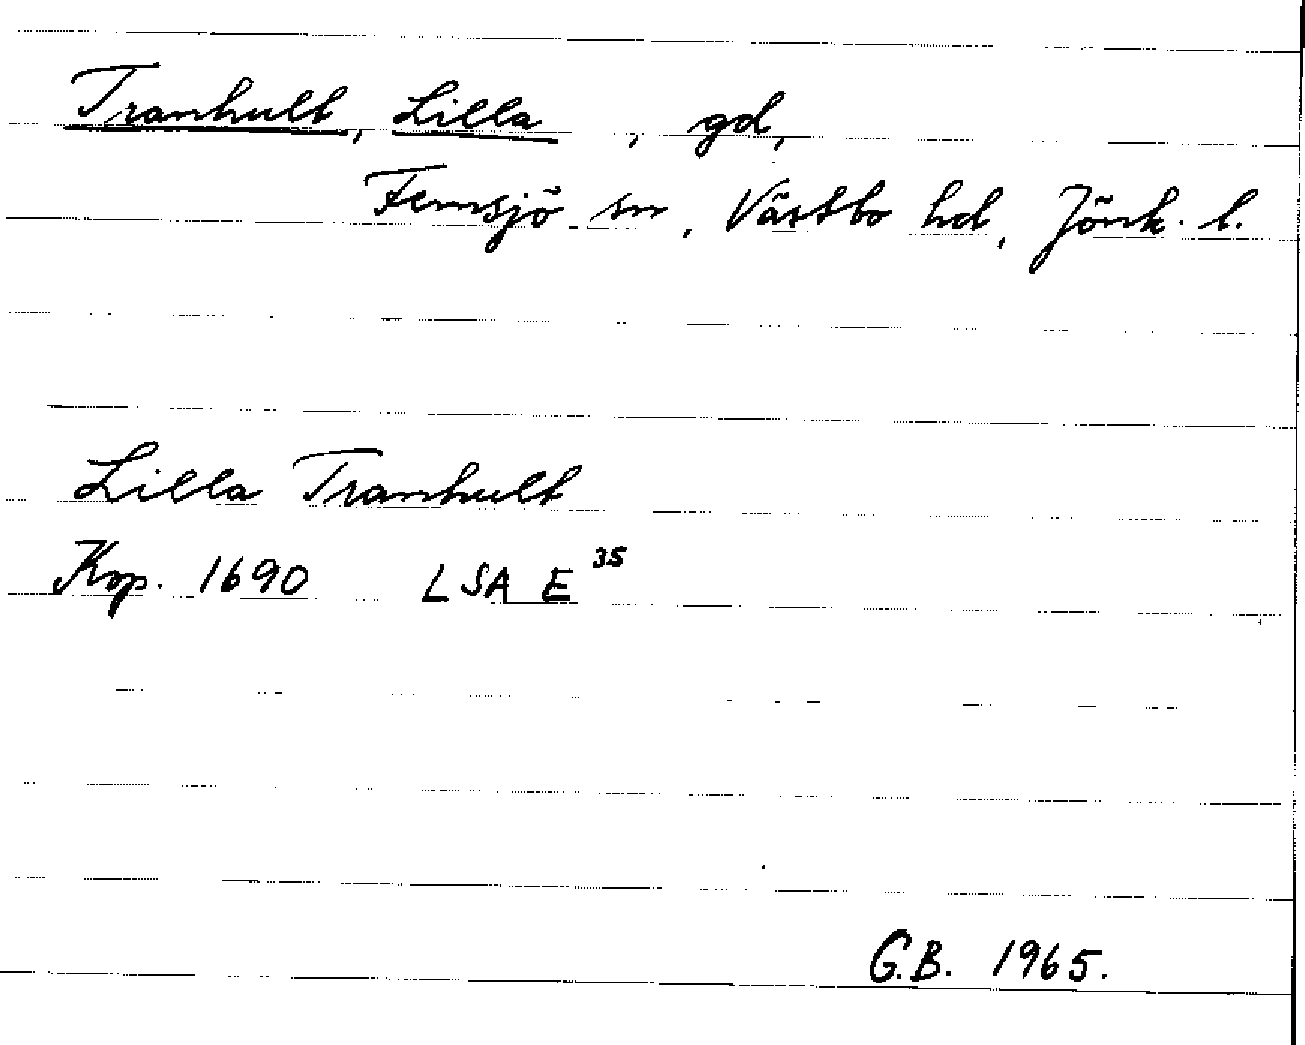 Tranhult, Lilla, gd,
Femsjö sn, Västbo hd, Jönk. l.
Lilla Tranhult
Kop. 1690 LSA E 35
G.B. 1965.